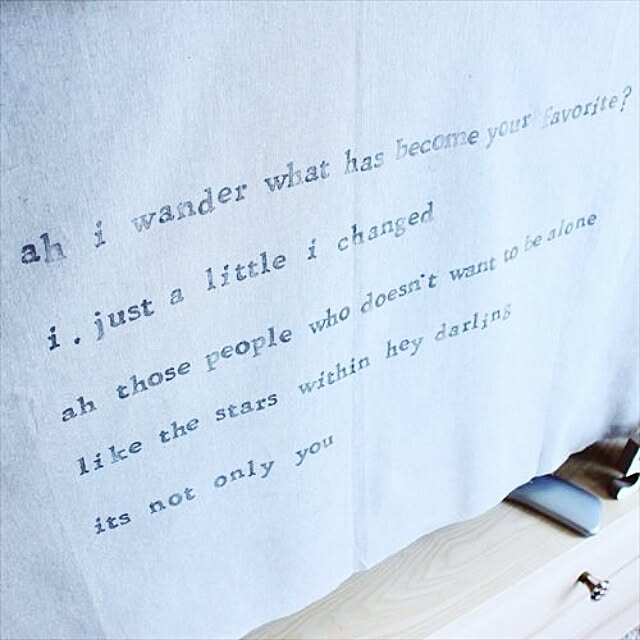 ah i wander what has become your favorite?
i. just a little i changed
ah those people who doesn't want to be alone
like the stars within hey darling
its not only you